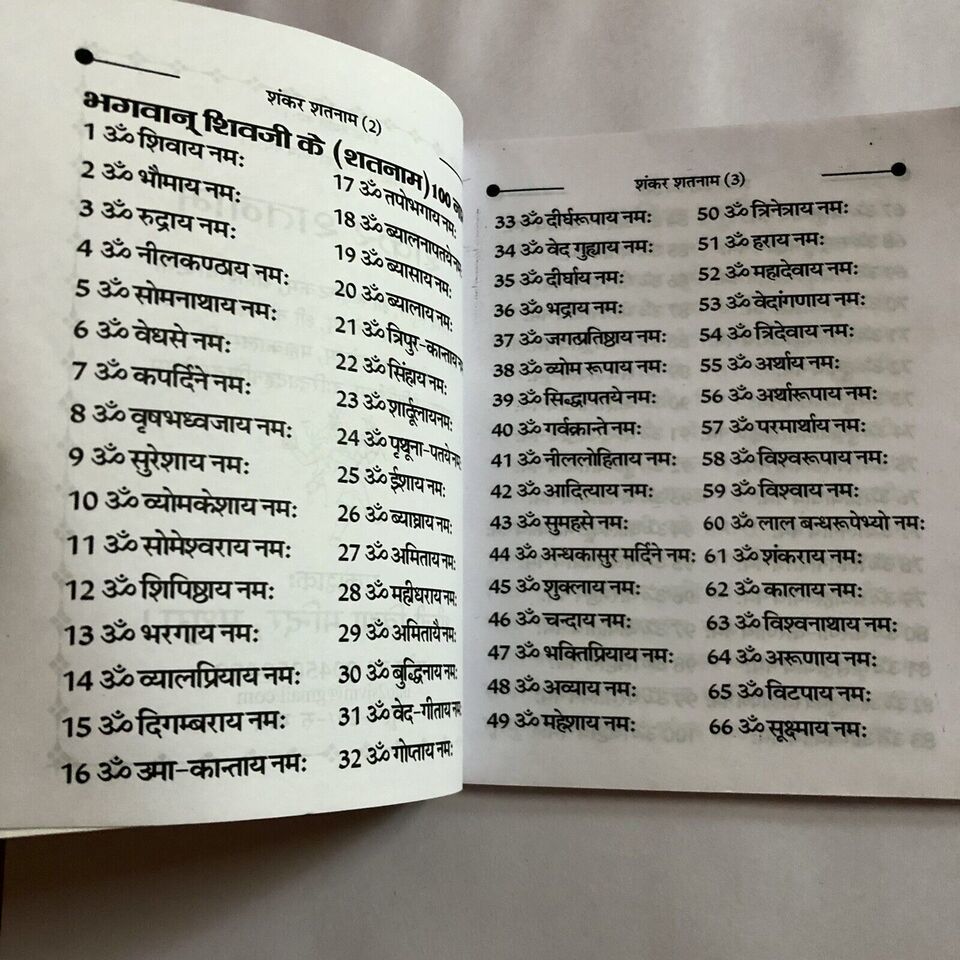 शंकर शतनाम (2)
भगवान् शिवजी के (शतनाम) 100
1 ॐ शिवाय नमः
2 ॐ भौमाय नमः
3 ॐ रुद्राय नमः
4 ॐ नीलकण्ठाय नमः
5 ॐ सोमनाथाय नमः
6 ॐ वेधसे नमः
7 ॐ कपर्दिने नमः
8 ॐ वृषभध्वजाय नमः
9 ॐ सुरेशाय नमः
10 ॐ व्योमकेशाय नमः
11 ॐ सोमेश्वराय नमः
12 ॐ शिपिष्ठाय नमः
13 ॐ भरगाय नमः
14 ॐ व्यालप्रियाय नमः
15 ॐ दिगम्बराय नमः
16 ॐ उमा-कान्ताय नमः
17 ॐ तपोभगाय नमः
18 ॐ ब्यालनापतये नमः
19 ॐ ब्यासाय नमः
20 ॐ ब्यालाय नमः
21 ॐ त्रिपुर-कान्ताय
22 ॐ सिंहाय नमः
23 ॐ शार्दूलायनमः
24 ॐ पृथूना-पतये नमः
25 ॐ ईशाय नमः
26 ॐ ब्याघ्राय नमः
27 ॐ अमिताय नमः
28 ॐ महीधराय नमः
29 ॐ अमितायै नमः
30 ॐ बुद्धिनाय नमः
31 ॐ वेद-गीताय नमः
32 ॐ गोप्ताय नमः
शंकर शतनाम (3)
33 ॐ दीर्घरूपाय नमः
34 ॐ वेद गुह्याय नमः
35 ॐ दीर्घाय नमः
36 ॐ भद्राय नमः
37 ॐ जगत्प्रतिष्ठाय नमः
38 ॐ व्योम रूपाय नमः
39 ॐ सिद्धापतये नमः
40 ॐ गर्वक्रान्ते नमः
41 ॐ नीललोहिताय नमः
42 ॐ आदित्याय नमः
43 ॐ सुमहसे नमः
44 ॐ अन्धकासुर मर्दिने नमः
45 ॐ शुक्लाय नमः
46 ॐ चन्दाय नमः
47 ॐ भक्तिप्रियाय नमः
48 ॐ अव्याय नमः
49 ॐ महेशाय नमः
50 ॐ त्रिनेत्राय नमः
51 ॐ हराय नमः
52 ॐ महादेवाय नमः
53 ॐ वेदांगणाय नमः
54 ॐ त्रिदेवाय नमः
55 ॐ अर्थाय नमः
56 ॐ अर्थारूपाय नमः
57 ॐ परमार्थाय नमः
58 ॐ विश्वरूपाय नमः
59 ॐ विश्वाय नमः
60 ॐ लाल बन्धरूपेभ्यो नमः
61 ॐ शंकराय नमः
62 ॐ कालाय नमः
63 ॐ विश्वनाथाय नमः
64 ॐ अरूणाय नमः
65 ॐ विटपाय नमः
66 ॐ सूक्ष्माय नमः